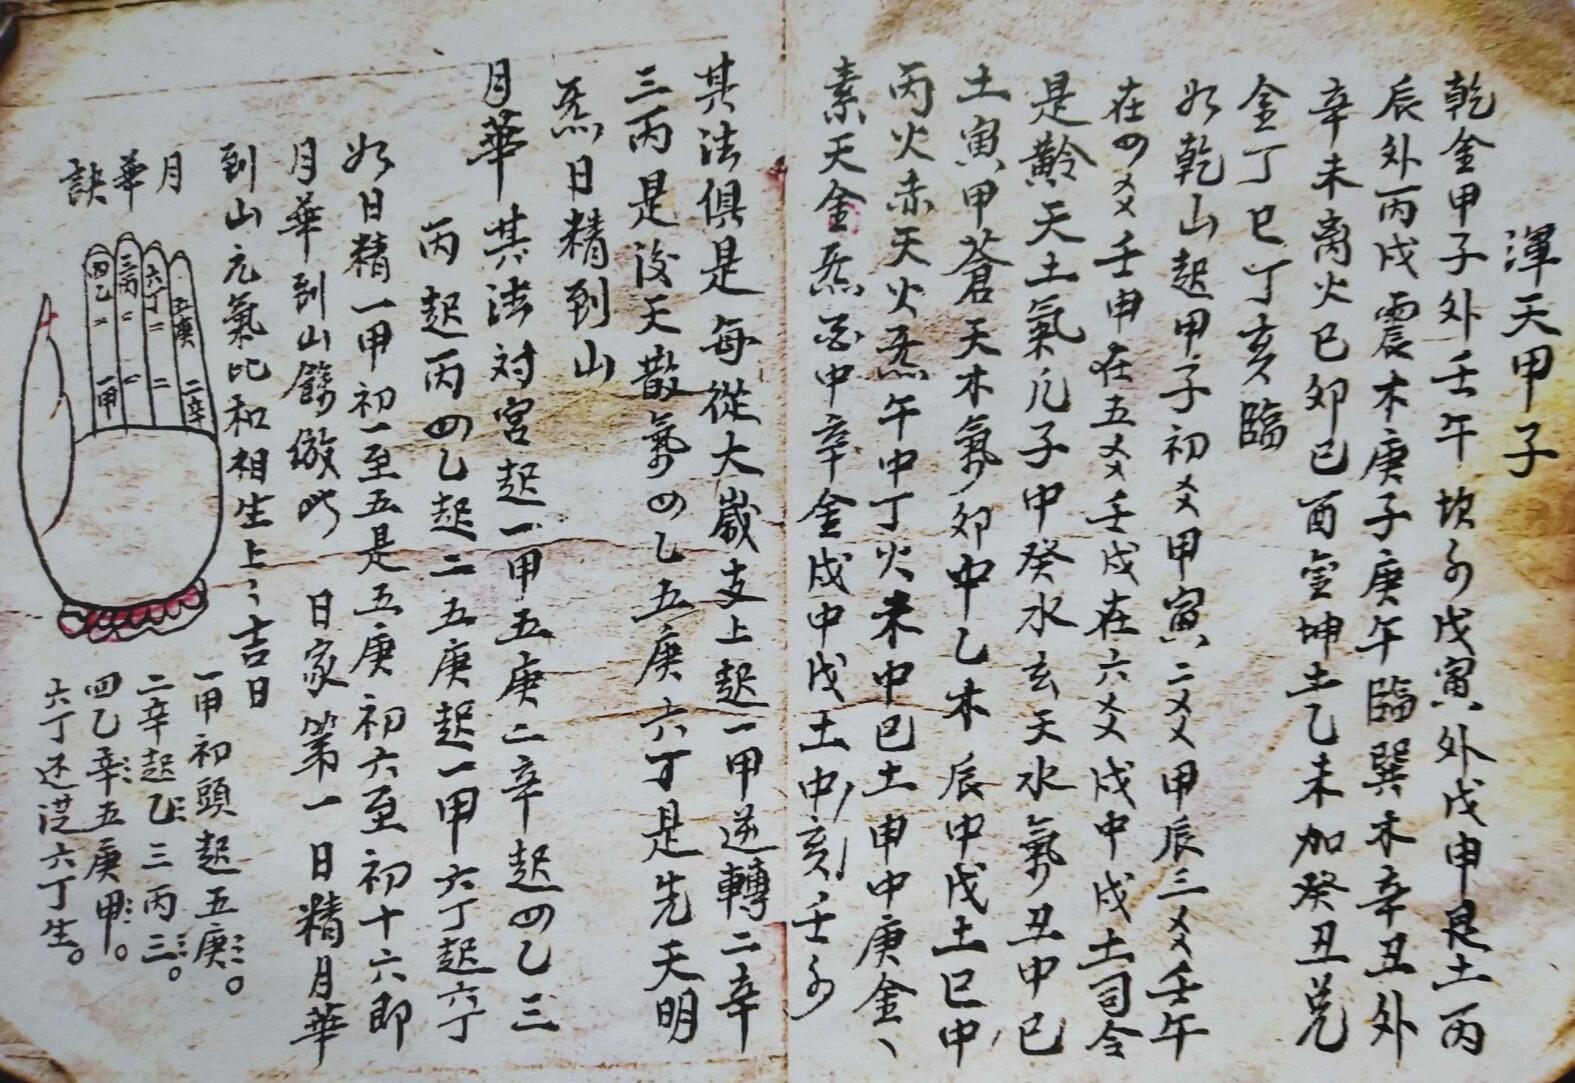 渾天甲子
乾金甲子外壬午坎水戊寅外戊申艮土丙
辰外丙戌震木庚子庚午臨巽木辛丑外
辛未离火巳卯巳酉宝坤土乙未加癸丑兑
金丁巳丁亥臨
如乾山起甲子初爻甲寅二爻甲辰三爻壬午
在四爻壬申在五爻壬戌在六爻戌中戌土司令
是黅天土氣凡子中癸水玄天水氣丑中巳
土寅甲蒼天木氣卯中乙木辰中戊土巳中
丙火赤天火炁午中丁火未中巳土申中庚金、
素天金炁酉中辛金戌中戊土中亥壬水
其法俱是每從大歲支上起一甲逆轉二辛
三丙是後天散氣四乙五庚六丁是先天明
炁日精到山
月華其法対宮起一甲五庚二辛起四乙三
丙起丙四乙起二五庚起一甲六丁起六丁
如日精一甲初一至五是五庚初六至初十六即
月華到山餘倣此 日家第一日精月華
到山元氣比和相生上〻吉日
月華訣
四乙 三丙 六丁 五庚
一甲 二辛
一甲初頭起五庚。
二辛起乙三丙三。
四乙辛五庚甲。
六丁还从六丁生。